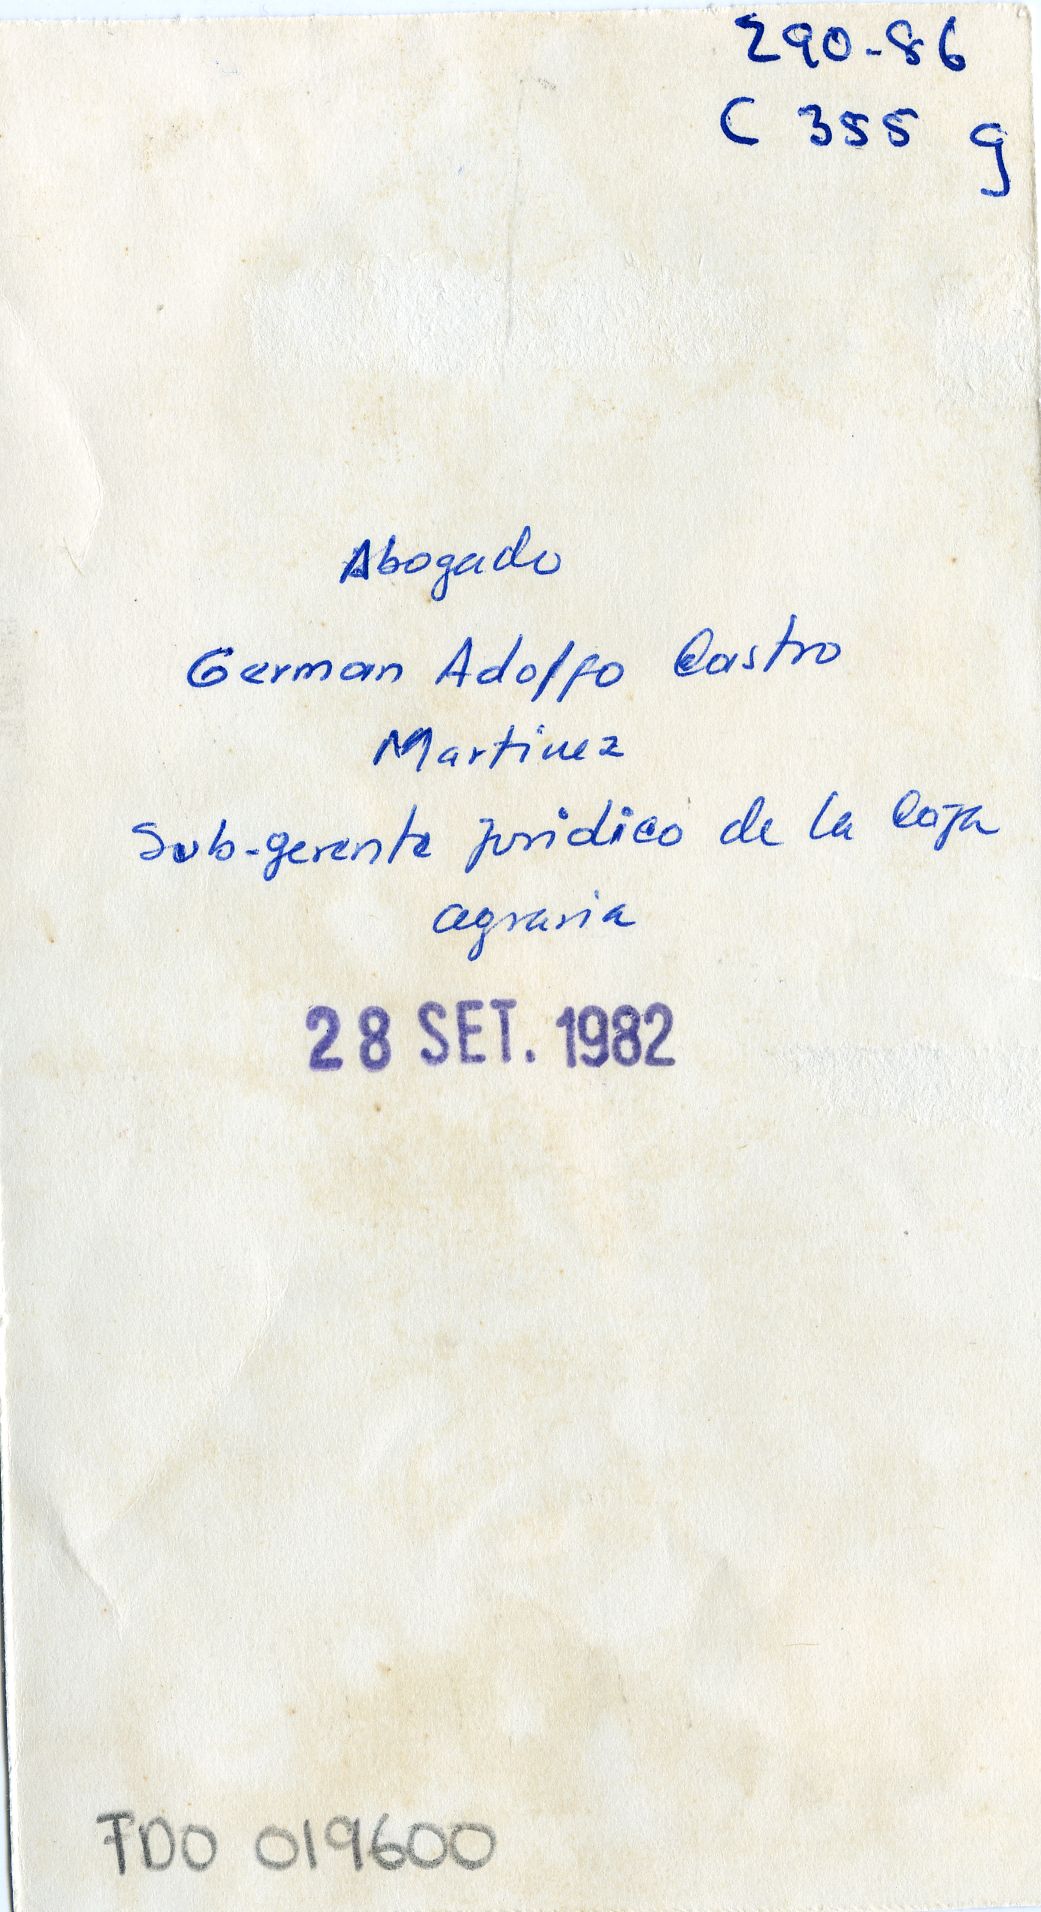 290-86
C 355 g
Abogado
German Adolfo Castro
Martinez
Sub-gerente juridico de la Caja
agraria
28 SET. 1982
FDO 019600